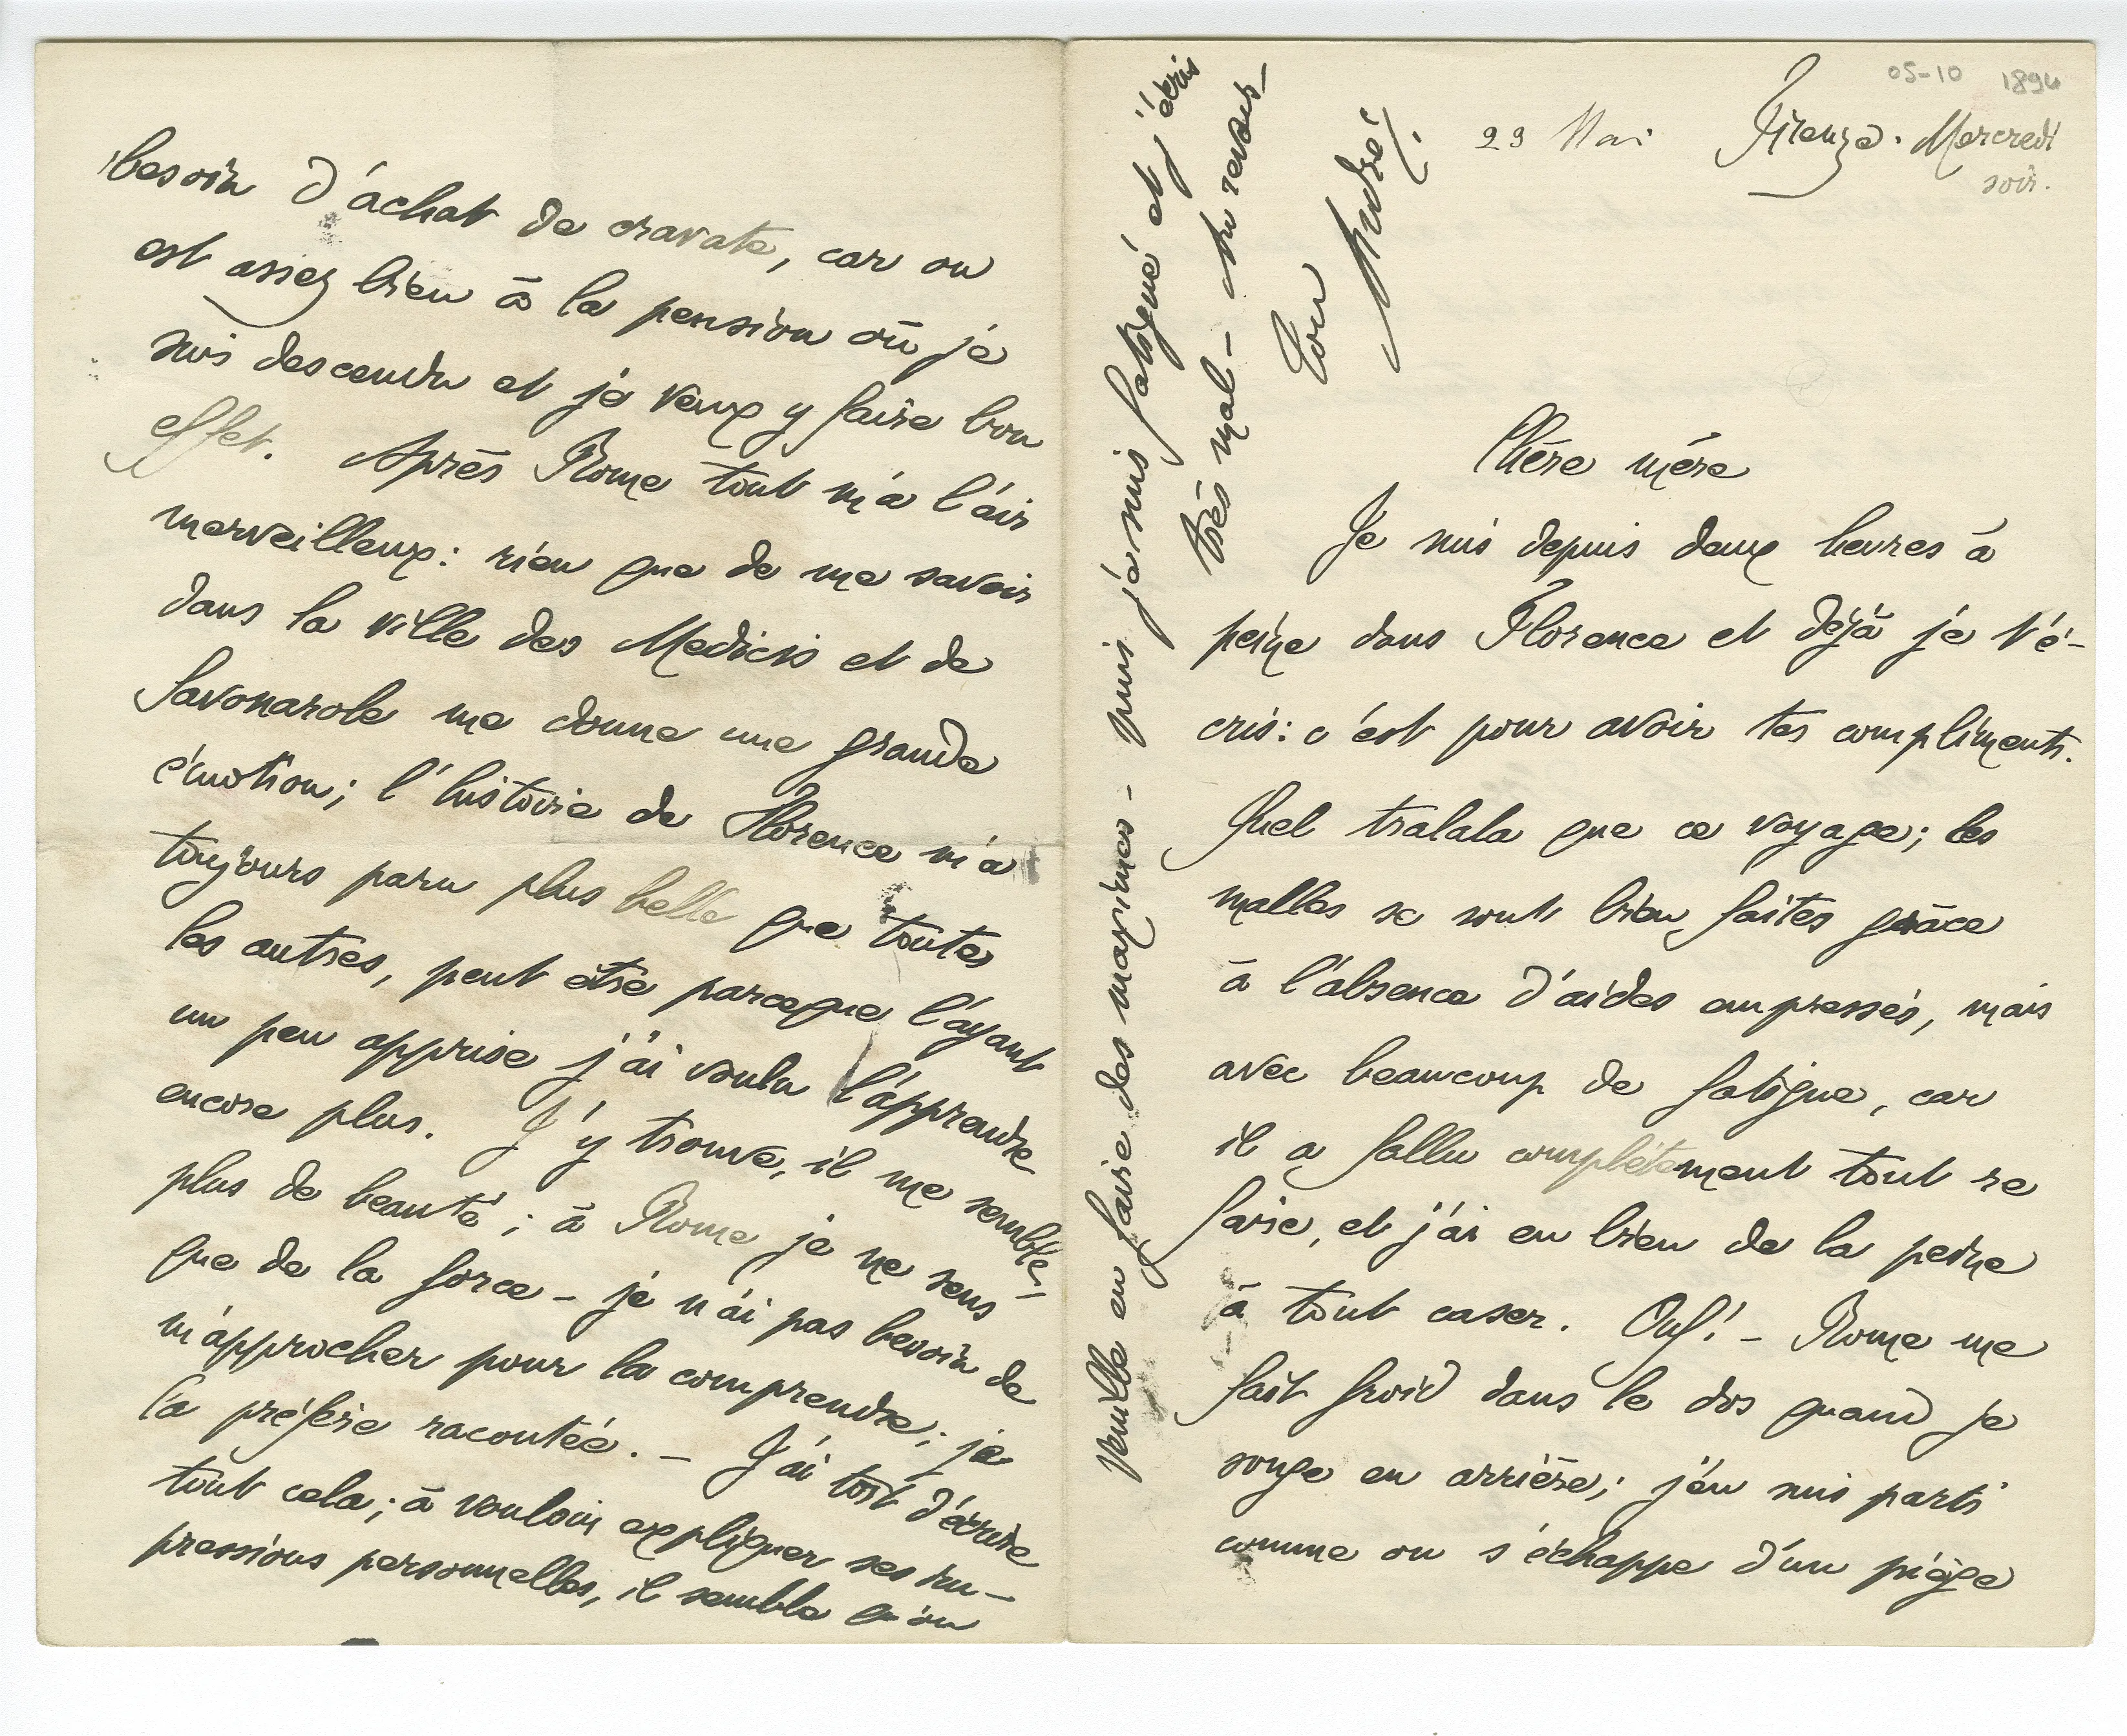 05-10 1894
23 Mai Firenze. Mercredi
soir.
Chère mère
Je suis depuis deux heures à
peine dans Florence et déjà je t'é-
cris : c'est pour avoir tes compliments.
Quel tralala que ce voyage ; les
malles se sont bien faites grâce
à l'absence d'aides empressés, mais
avec beaucoup de fatigue, car
il a fallu complètement tout re
faire, et j'ai eu bien de la peine
à tout caser. Ouf ! – Rome me
fait froid dans le dos quand je
songe en arrière ; j'en suis parti
comme on s'échappe d'un piège
besoin d'achat de cravate, car on
est assez bien à la pension où je
suis descendu et je veux y faire bon
effet. Après Rome tout m'a l'air
merveilleux : rien que de me savoir
dans la ville des Medicis et de
Savonarole me donne une grande
émotion ; l'histoire de Florence m'a
toujours paru plus belle que toutes
les autres, peut être parceque l'ayant
un peu apprise j'ai voulu l'apprendre
encore plus. J'y trouve, il me semble,
plus de beauté ; à Rome je ne sens
que de la force – je n'ai pas besoin de
m'approcher pour la comprendre ; je
la préfère racontée. – J'ai tort d'écrire
tout cela ; à vouloir expliquer ses im-
pressions personnelles, il semble qu'on
veuille en faire des maximes – puis je suis fatigué et j'écris
très mal – Au revoir –
Ton
André.